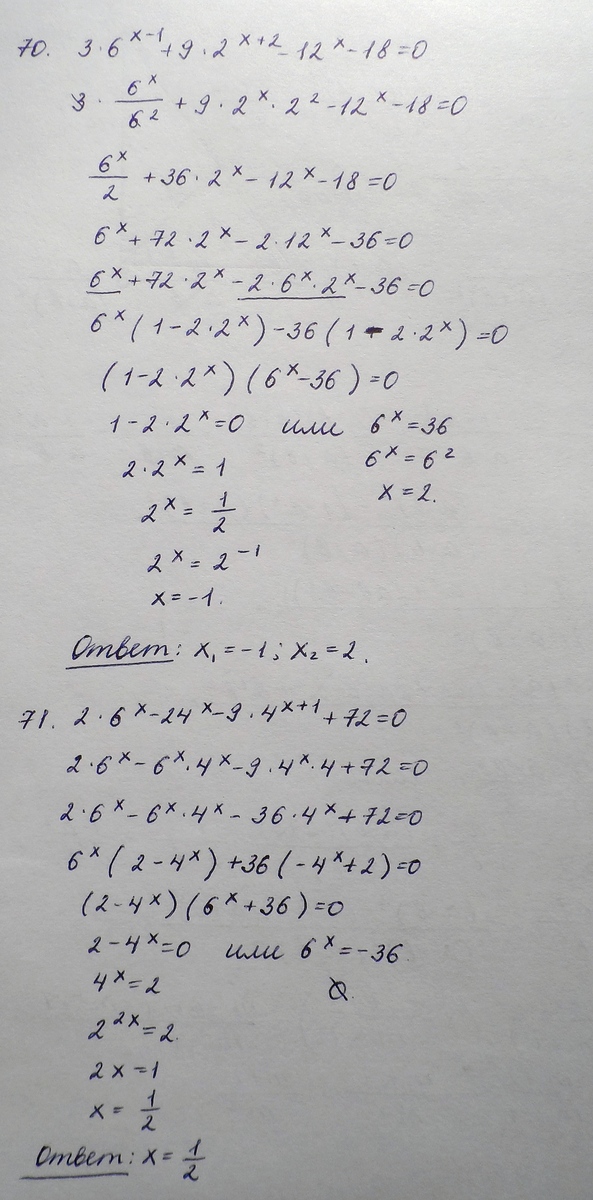 70. 3·6^(x-1) + 9·2^(x+2) - 12^x - 18 = 0
3 · 6^x/6^2 + 9·2^x·2^2 - 12^x - 18 = 0
6^x/2 + 36·2^x - 12^x - 18 = 0
6^x + 72·2^x - 2·12^x - 36 = 0
6^x + 72·2^x - 2·6^x·2^x - 36 = 0
6^x (1 - 2·2^x) - 36 (1 - 2·2^x) = 0
(1 - 2·2^x) (6^x - 36) = 0
1 - 2·2^x = 0 или 6^x = 36
2·2^x = 1 6^x = 6^2
2^x = 1/2 x = 2.
2^x = 2^(-1)
x = -1.
Ответ: x₁ = -1; x₂ = 2.
71. 2·6^x - 24^x - 9·4^(x+1) + 72 = 0
2·6^x - 6^x·4^x - 9·4^x·4 + 72 = 0
2·6^x - 6^x·4^x - 36·4^x + 72 = 0
6^x (2 - 4^x) + 36 (-4^x + 2) = 0
(2 - 4^x) (6^x + 36) = 0
2 - 4^x = 0 или 6^x = -36
4^x = 2 Ø.
2^(2x) = 2.
2x = 1
x = 1/2
Ответ: x = 1/2